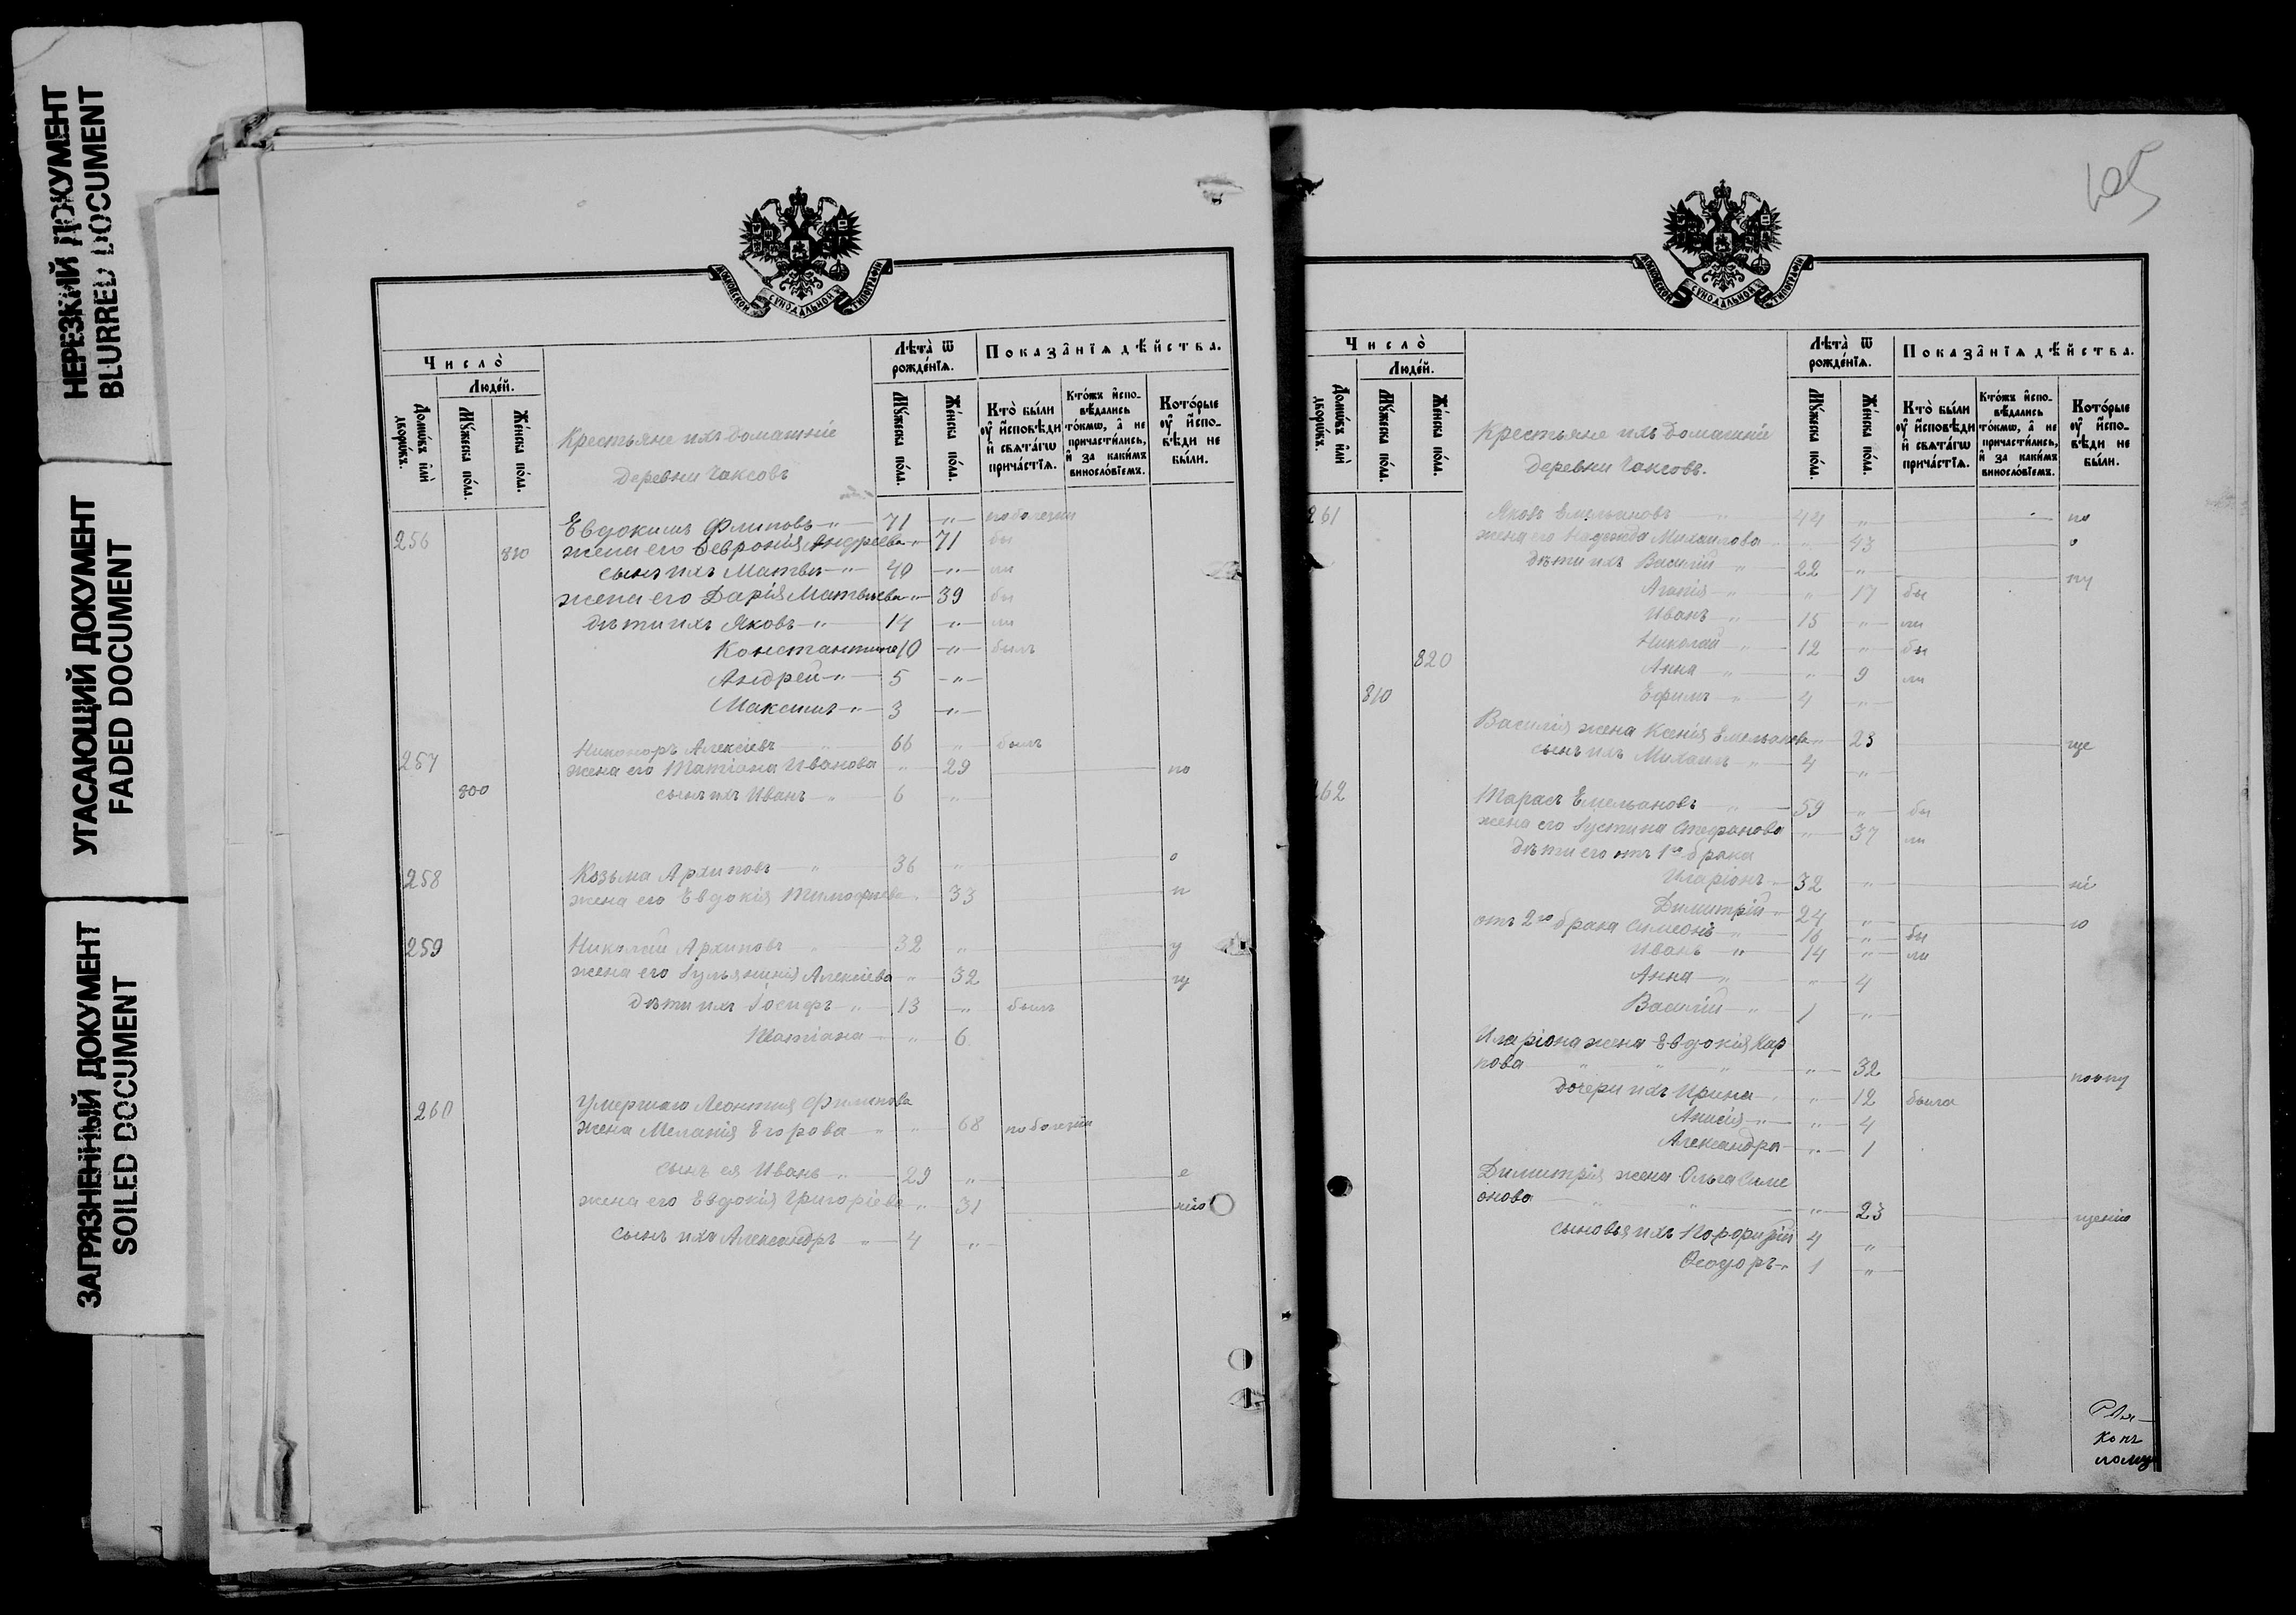 НЕРЕЗКИЙ ДОКУМЕНТ
BLURRED DOCUMENT
УГАСАЮЩИЙ ДОКУМЕНТ
FADED DOCUMENT
ЗАГРЯЗНЕННЫЙ ДОКУМЕНТ
SOILED DOCUMENT
МОСКОВСКОЙ СѴНОДАЛЬНОЙ ТИПОГРАФІИ
Число̀
Людéй.
Домѡ́въ и҆лѝ дворѡ́въ.
Мꙋ́жеска по́ла.
Же́нска по́ла.
Крестьяне ихъ домашніе
деревни Чаксовъ
Лѣта̀ ѿ рожде́нїѧ.
Мꙋ́жеска по́ла.
Же́нска по́ла.
Показа̂нїѧ дѣ́йства.
Кто̀ бы́ли ᲂу҆ и҆сповѣ́ди и҆ свѧта́гѡ прича́стїѧ.
Кто́жъ и҆спо-вѣ́дались то́кмѡ, а҆ не причасти́лись, и҆ за каки́мъ винословїемъ.
Кото́рые ᲂу҆ и҆спо-вѣ́ди не бы́ли.
256 Евдокимъ Филиповъ 71 по болезни
810 жена его Феврония Андреева 71 бы
сынъ ихъ Матвѣй 40 ли
жена его Дарія Матвѣева 39 бы
дѣти ихъ Яковъ 14 ли
Константинъ 10 былъ
Андрей 5
Максимъ 3
257 Никоноръ Алексіевъ 66 былъ
жена его Татіана Иванова 29 по
800 сынъ ихъ Иванъ 6
258 Козьма Архиповъ 36 о
жена его Евдокія Тимофеева 33 п
259 Николай Архиповъ 32 у
жена его Іульянія Алексіева 32
дѣти ихъ Іосифъ 13 былъ
Татіана 6
260 Умершаго Леонтія Филипова
жена Меланія Егорова 68 по болезни
сынъ ея Иванъ 29 е
жена его Евдокія Григоріева 31 нію
сынъ ихъ Александръ 4
105
МОСКОВСКОЙ СѴНОДАЛЬНОЙ ТИПОГРАФІИ
Число̀
Людéй.
Домѡ́въ и҆лѝ дворѡ́въ.
Мꙋ́жеска по́ла.
Же́нска по́ла.
Крестьяне ихъ домашніе
деревни Чаксовъ.
Лѣта̀ ѿ рожде́нїѧ.
Мꙋ́жеска по́ла.
Же́нска по́ла.
Показа̂нїѧ дѣ́йства.
Кто̀ бы́ли ᲂу҆ и҆сповѣ́ди и҆ свѧта́гѡ прича́стїѧ.
Кто́жъ и҆спо-вѣ́дались то́кмѡ, а҆ не причасти́лись, и҆ за каки́мъ винословїемъ.
Кото́рые ᲂу҆ и҆спо-вѣ́ди не бы́ли.
261 Яковъ Емельяновъ 44 по
жена его Надежда Михаилова 43 о
дѣти ихъ Василій 22 пу
Агапія 17 бы
Иванъ 15 ли
Николай 12 бы
820 Анна 9 ли
810 Ефимъ 4
Василія жена Ксенія Емельянова 23 ще
сынъ ихъ Михаилъ 4
262 Тарасъ Емельяновъ 59 бы
жена его Іустина Стефанова 37 ли
дѣти его отъ 1го брака
Иларіонъ 32 ні
Димитрій 24 ю
отъ 2го брака Симеонъ 16 бы
Иванъ 14 ли
Анна 4
Василій 1
Иларіона жена Евдокія Кар
пова 32 по опу
дочери ихъ Ирина 12 была
Анисія 4
Александра 1
Димитрія жена Ольга Симе
онова 23 щенію
сыновья ихъ Порфирій 4
Ѳеодоръ 1